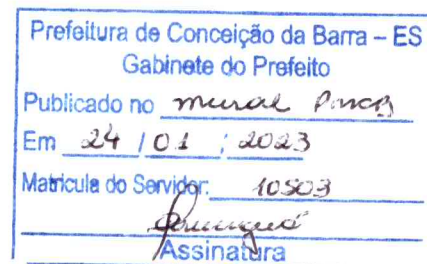 Prefeitura de Conceição da Barra – ES
Gabinete do Prefeito
Publicado no mural PMCB
Em 24 / 01 / 2023
Matricula do Servidor: 10503
Assinatura